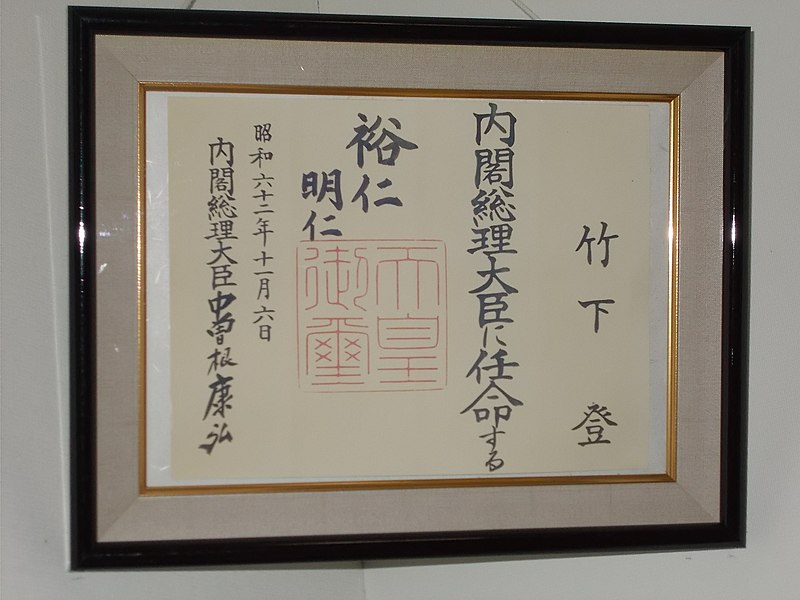 竹下登
内閣総理大臣に任命する
裕仁
明仁
天皇御璽
昭和六十二年十一月六日
内閣総理大臣中曽根康弘